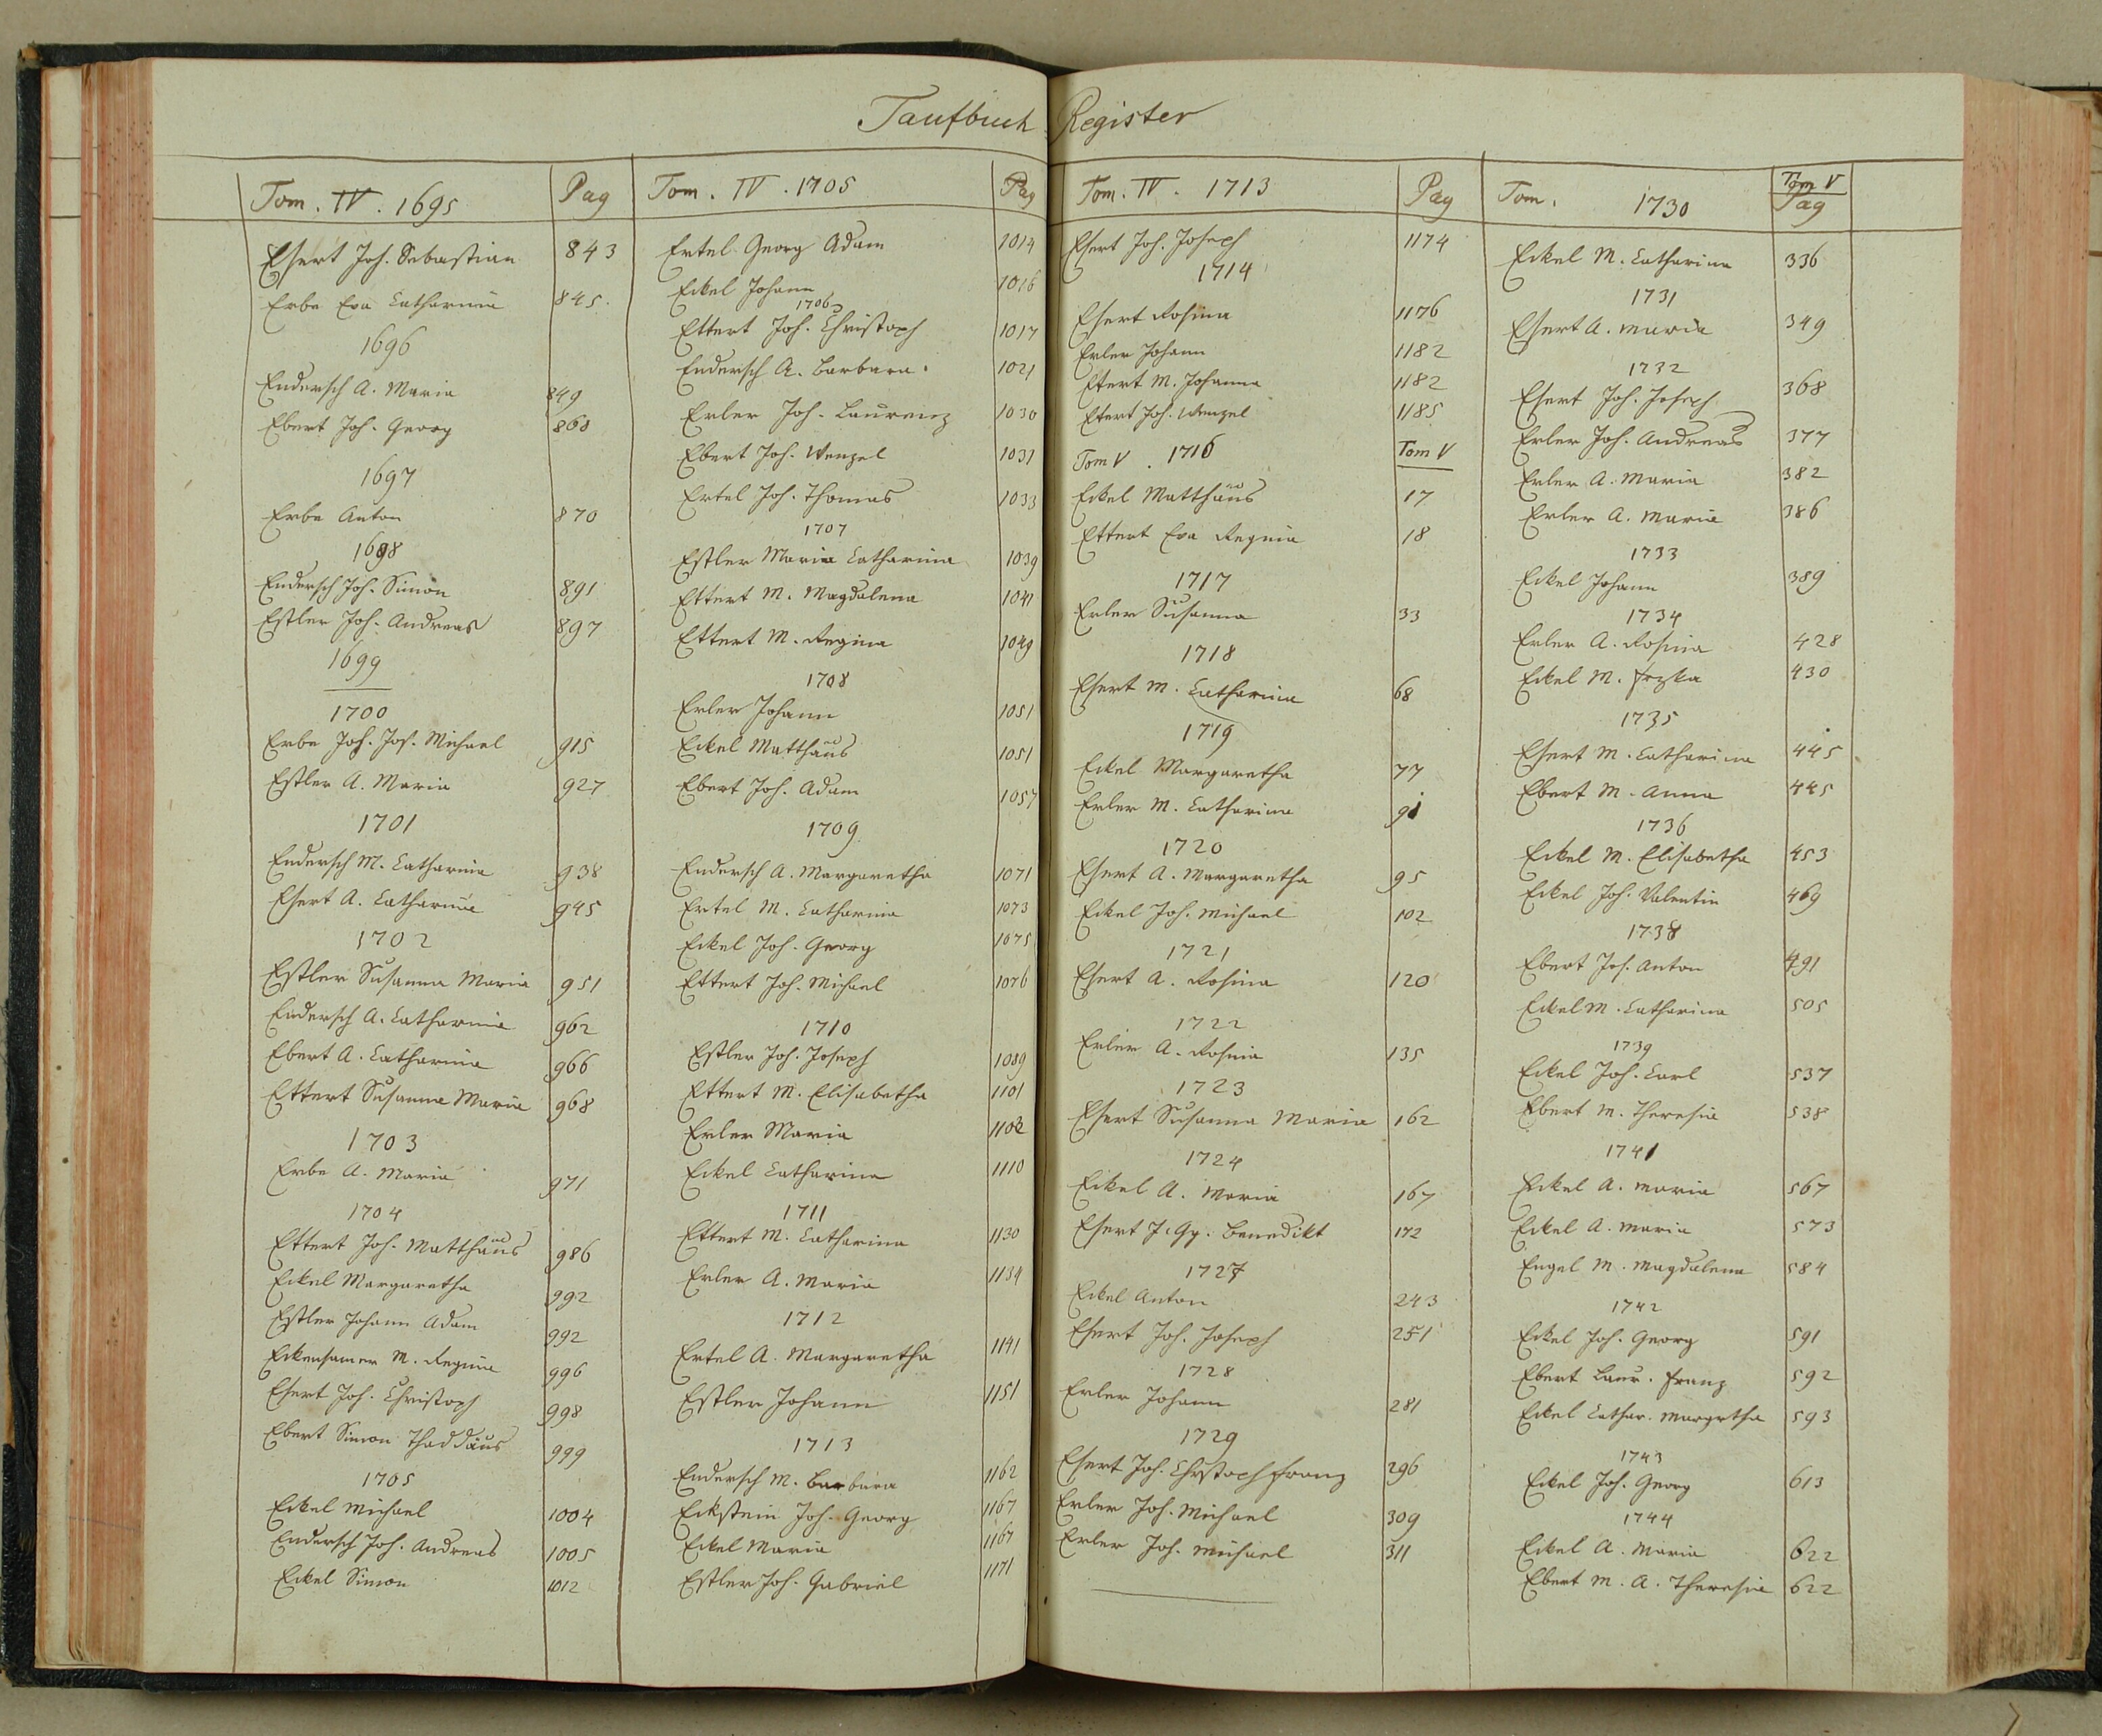 Taufbuch Register
Tom. IV. 1695 Pag
Esert Joh. Sebastian 843
Erbe Eva Catharina 845.
1696
Endersch A. Maria 849
Ebert Joh. Georg 868
1697
Erbe Anton 870
1698
Endersch Joh. Simon 891
Estler Joh. Andreas 897
1699
1700
Erbe Joh. Jos. Michael 915
Estler A. Maria 927
1701
Endersch M. Catharina 938
Esert A. Catharina 945
1702
Estler Susanna Maria 951
Endersch A. Catharina 962
Ebert A. Catharina 966
Ettert Susanna Maria 968
1703
Erbe A. Maria 971
1704
Ettert Joh. Matthäus 986
Eckel Margaretha 992
Estler Johann Adam 992
Eckensamer M. Regina 996
Esert Joh. Christoph 998
Ebert Simon Thaddäus 999
1705
Eckel Michael 1004
Endersch Joh. Andreas 1005
Eckel Simon 1012
Tom. IV. 1705 Pag
Ertel Georg Adam 1014
Eckel Johann 1016
1706
Ettert Joh. Christoph 1017
Endersch A. Barbara. 1021
Erler Joh. Laurenz 1030
Ebert Joh. Wenzel 1031
Ertel Joh. Thomas 1033
1707
Estler Maria Catharina 1039
Ettert M. Magdalena 1041
Ettert M. Regina 1049
1708
Erler Johann 1051
Eckel Matthäus 1051
Ebert Joh. Adam 1057
1709
Endersch A. Margaretha 1071
Ertel M. Catharina 1073
Eckel Joh. Georg 1075
Ettert Joh. Michael 1076
1710
Estler Joh. Joseph 1089
Ettert M. Elisabetha 1101
Erler Maria 1102
Eckel Catharina 1110
1711
Ettert M. Catharina 1130
Erler A. Maria 1134
1712
Ertel A. Margaretha 1141
Estler Johann 1151
1713
Endersch M. Barbara 1162
Eckstein Joh. Georg 1167
Eckel Maria 1167
Estler Joh. Gabriel 1171
Tom. IV. 1713 Pag
Esert Joh. Joseph 1174
1714
Esert Rosina 1176
Erler Johann 1182
Etert M. Johanna 1182
Etert Joh. Wenzel 1185
Tom V. 1716 Tom V
Eckel Matthäus 17
Ettert Eva Regina 18
1717
Erler Susanna 33
1718
Esert M. Catharina 68
1719
Eckel Margaretha 77
Erler M. Catharina 91
1720
Esert A. Margaretha 95
Eckel Joh. Michael 102
1721
Esert A. Rosina 120
1722
Erler A. Rosina 135
1723
Esert Susanna Maria 162
1724
Eckel A. Maria 167
Esert J. Gg. Benedikt 172
1727
Eckel Anton 243
Esert Joh. Joseph 251
1728
Erler Johann 281
1729
Esert Joh. Chrstoph Franz 296
Erler Joh. Michael 309
Erler Joh. Michael 311
Tom. 1730 Tom V Pag
Eckel M. Catharina 336
1731
Esert A. Maria 349
1732
Esert Joh. Joseph 368
Erler Joh. Andreas 377
Erler A. Maria 382
Erler A. Maria 386
1733
Eckel Johann 389
1734
Erler A. Rosina 428
Eckel M. Frzka 430
1735
Esert M. Catharina 445
Ebert M. Anna 445
1736
Eckel M. Elisabetha 453
Eckel Joh. Valentin 469
1738
Ebert Jos. Anton 491
Eckel M. Catharina 505
1739
Eckel Joh. Carl 537
Ebert M. Theresia 538
1741
Eckel A. Maria 567
Eckel A. Maria 573
Engel M. Magdalena 584
1742
Eckel Joh. Georg 591
Ebert Laur. Franz 592
Eckel Cathar. Margrtha 593
1743
Eckel Joh. Georg 613
1744
Eckel A. Maria 622
Ebert M. A. Theresia 622